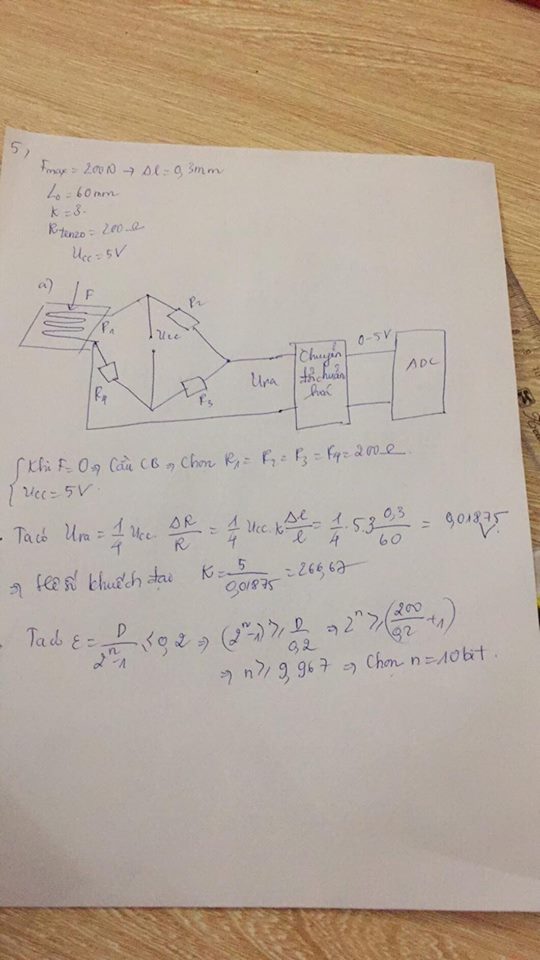 5,
Fmax = 200N → Δl = 0,3mm
L₀ = 60mm
K = 3.
Rtenzo = 200Ω
Ucc = 5V
a)
F
R1
R2
Ucc
R4
R3
Ura
Chuyển
đổi chuẩn
hoá
0-5V
ADC
{ Khi F = 0 ⇒ Cầu CB ⇒ Chọn R1 = R2 = R3 = R4 = 200Ω.
Ucc = 5V.
. Ta có Ura = 1/4 Ucc. ΔR/R = 1/4 Ucc. K Δl/l = 1/4 . 5.3 0,3/60 = 0,01875 V
⇒ Hệ số khuếch đại K = 5/0,01875 = 266,67
. Ta có ε = D/(2ⁿ-1) ≤ 0,2 ⇒ (2ⁿ-1) ≥ D/0,2 ⇒ 2ⁿ ≥ (200/0,2 + 1)
⇒ n ≥ 9,967 ⇒ Chọn n = 10 bit.